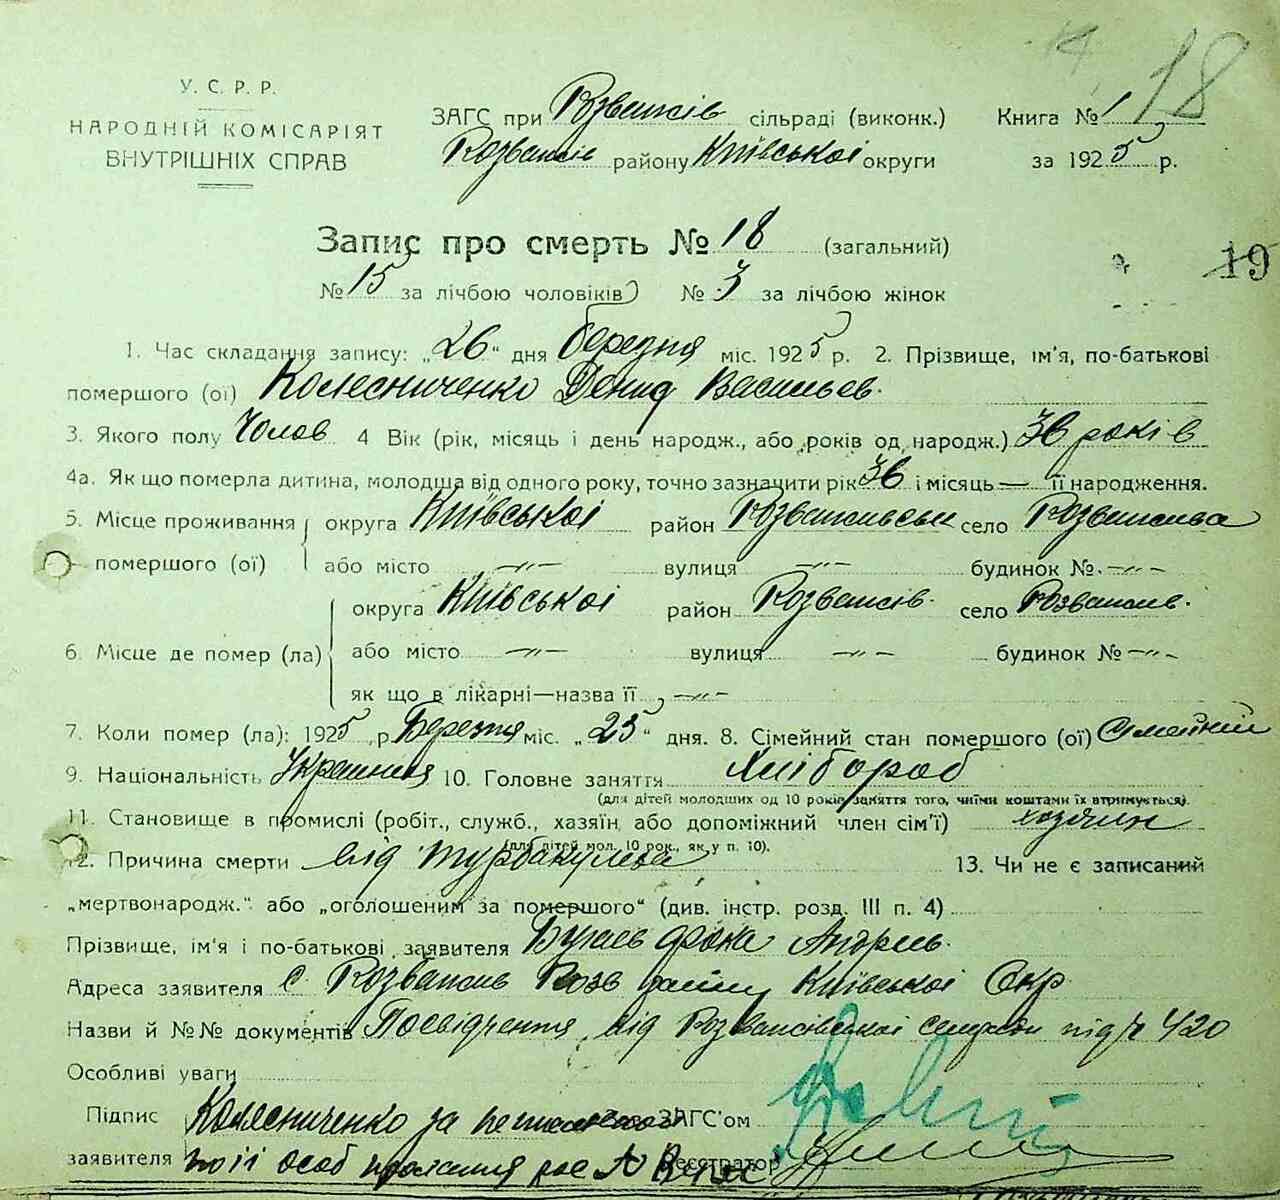 18
У. С. Р. Р.
НАРОДНІЙ КОМІСАРІЯТ
ВНУТРІШНІХ СПРАВ
ЗАГС при Розважів сільраді (виконк.) Книга № 1
Розважів району Київської округи за 1925 р.
Запис про смерть № 18 (загальний)
19
№ 15 за лічбою чоловіків № 3 за лічбою жінок
1. Час складання запису: „26“ дня березня міс. 1925 р. 2. Прізвище, ім'я, по-батькові
помершого (ої) Колесниченко Денид Васильев.
3. Якого полу Чолов 4 Вік (рік, місяць і день народж., або років од народж.) 36 років
4а. Як що померла дитина, молодша від одного року, точно зазначити рік 36 і місяць — її народження.
5. Місце проживання округа Київської район Розважівськ село Розважива
помершого (ої) або місто -"- вулиця -"- будинок №. -"-
округа Київської район Розважів. село Розважів.
6. Місце де помер (ла) або місто -"- вулиця -"- будинок № -"-
як що в лікарні—назва її -"-
7. Коли помер (ла): 1925 р. Березня міс. „25“ дня. 8. Сімейний стан помершого (ої) Сімейний
9. Національність 10. Головне заняття Хлібороб
(для дітей молодших од 10 років заняття того, чиїми коштами їх втримується).
11. Становище в промислі (робіт., служб., хазяїн або допоміжний член сім'ї) хозяин
(для дітей мол. 10 рок., як у п. 10).
12. Причина смерти від турбакульоза 13. Чи не є записаний
„мертвонародж.“ або „оголошеним за помершого“ (див. інстр. розд. III п. 4)
Прізвище, ім'я і по-батькові заявителя Андрієв.
Адреса заявителя с. Розважів Розв району Київської Окр
Назви й №№ документів Посвідчення від Розважівської сільради під № 420
Особливі уваги
Підпис Колесниченко за ЗАГС'ом
заявителя осоb Реєстратор